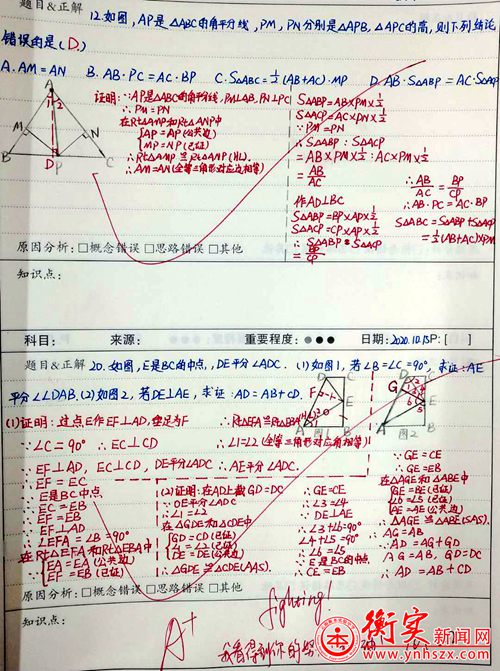 题目&正解 12.如图,AP是△ABC的角平分线,PM,PN分别是△APB,△APC的高,则下列结论
错误的是(D)
A.AM=AN B.AB·PC=AC·BP C.S△ABC=½(AB+AC)·MP D.AB·S△ABP=AC·S△ACP
A
1 2
M
N
B
D
P
C
证明:∵AP是△ABC的角平分线,PM⊥AB,PN⊥PC
∴PM=PN
在Rt△AMP和Rt△ANP中
AP=AP(公共边)
MP=NP(已证)
∴Rt△AMP≌Rt△ANP(HL).
∴AM=AN(全等三角形对应边相等)
S△ABP=AB×PM×½
S△ACP=AC×PN×½
∵PM=PN
∴S△ABP:S△ACP
=AB×PM×½:AC×PM×½
=AB/AC
作AD⊥BC
S△ABP=BP×AP×½
S△ACP=CP×AP×½
∴S△ABP:S△ACP
=BP/CP
∴AB/AC=BP/CP
∴AB·PC=AC·BP
S△ABC=S△ABP+S△ACP
=½(AB+AC)×PM
原因分析:□概念错误 □思路错误 □其他
知识点:
科目: 来源: 重要程度:●●● 日期:2020.10.15 P:[ ]
题目&正解 20.如图,E是BC的中点,DE平分∠ADC.(1)如图1,若∠B=∠C=90°,求证:AE
平分∠DAB.(2)如图2,若DE⊥AE,求证:AD=AB+CD.
图1
图2
(1)证明:过点E作EF⊥AD,垂足为F
∵∠C=90° ∴EC⊥CD
∵EF⊥AD,EC⊥CD,DE平分∠ADC
∴EF=EC
∵E是BC中点
∴EC=EB
∴EF=EB
∵EF⊥AD
∴∠EFA=∠B=90°
在Rt△EFA和Rt△EBA中
EA=EA(公共边)
EF=EB(已证)
∴Rt△EFA≌Rt△EBA
∴∠1=∠2(全等三角形对应角相等)
∴AE平分∠ADC.
(2)证明:在AD上截GD=DC
∵DE平分∠ADC
∴∠1=∠2
在△GDE和△CDE中
GD=CD(已证)
∠1=∠2(已证)
DE=DE(公共边)
∴△GDE≌△CDE(SAS).
∴GE=CE
∴∠3=∠4
∵DE⊥AE
∴∠3+∠6=90°
∠4+∠5=90°
∴∠6=∠5
∵E是BC的中点
∴CE=EB
∵GE=CE
∴GE=EB
在△AGE和△ABE中
GE=BE(已证)
∠6=∠5(已证)
AE=AE(公共边)
∴△AGE≌△ABE(SAS).
∴AG=AB
∵AD=AG+GD
AG=AB,GD=DC
∴AD=AB+CD
原因分析:□概念错误 □思路错误 □其他
知识点:
A+
fighting!
我看得到你的努
衡实新闻网
www.ynhszx.com